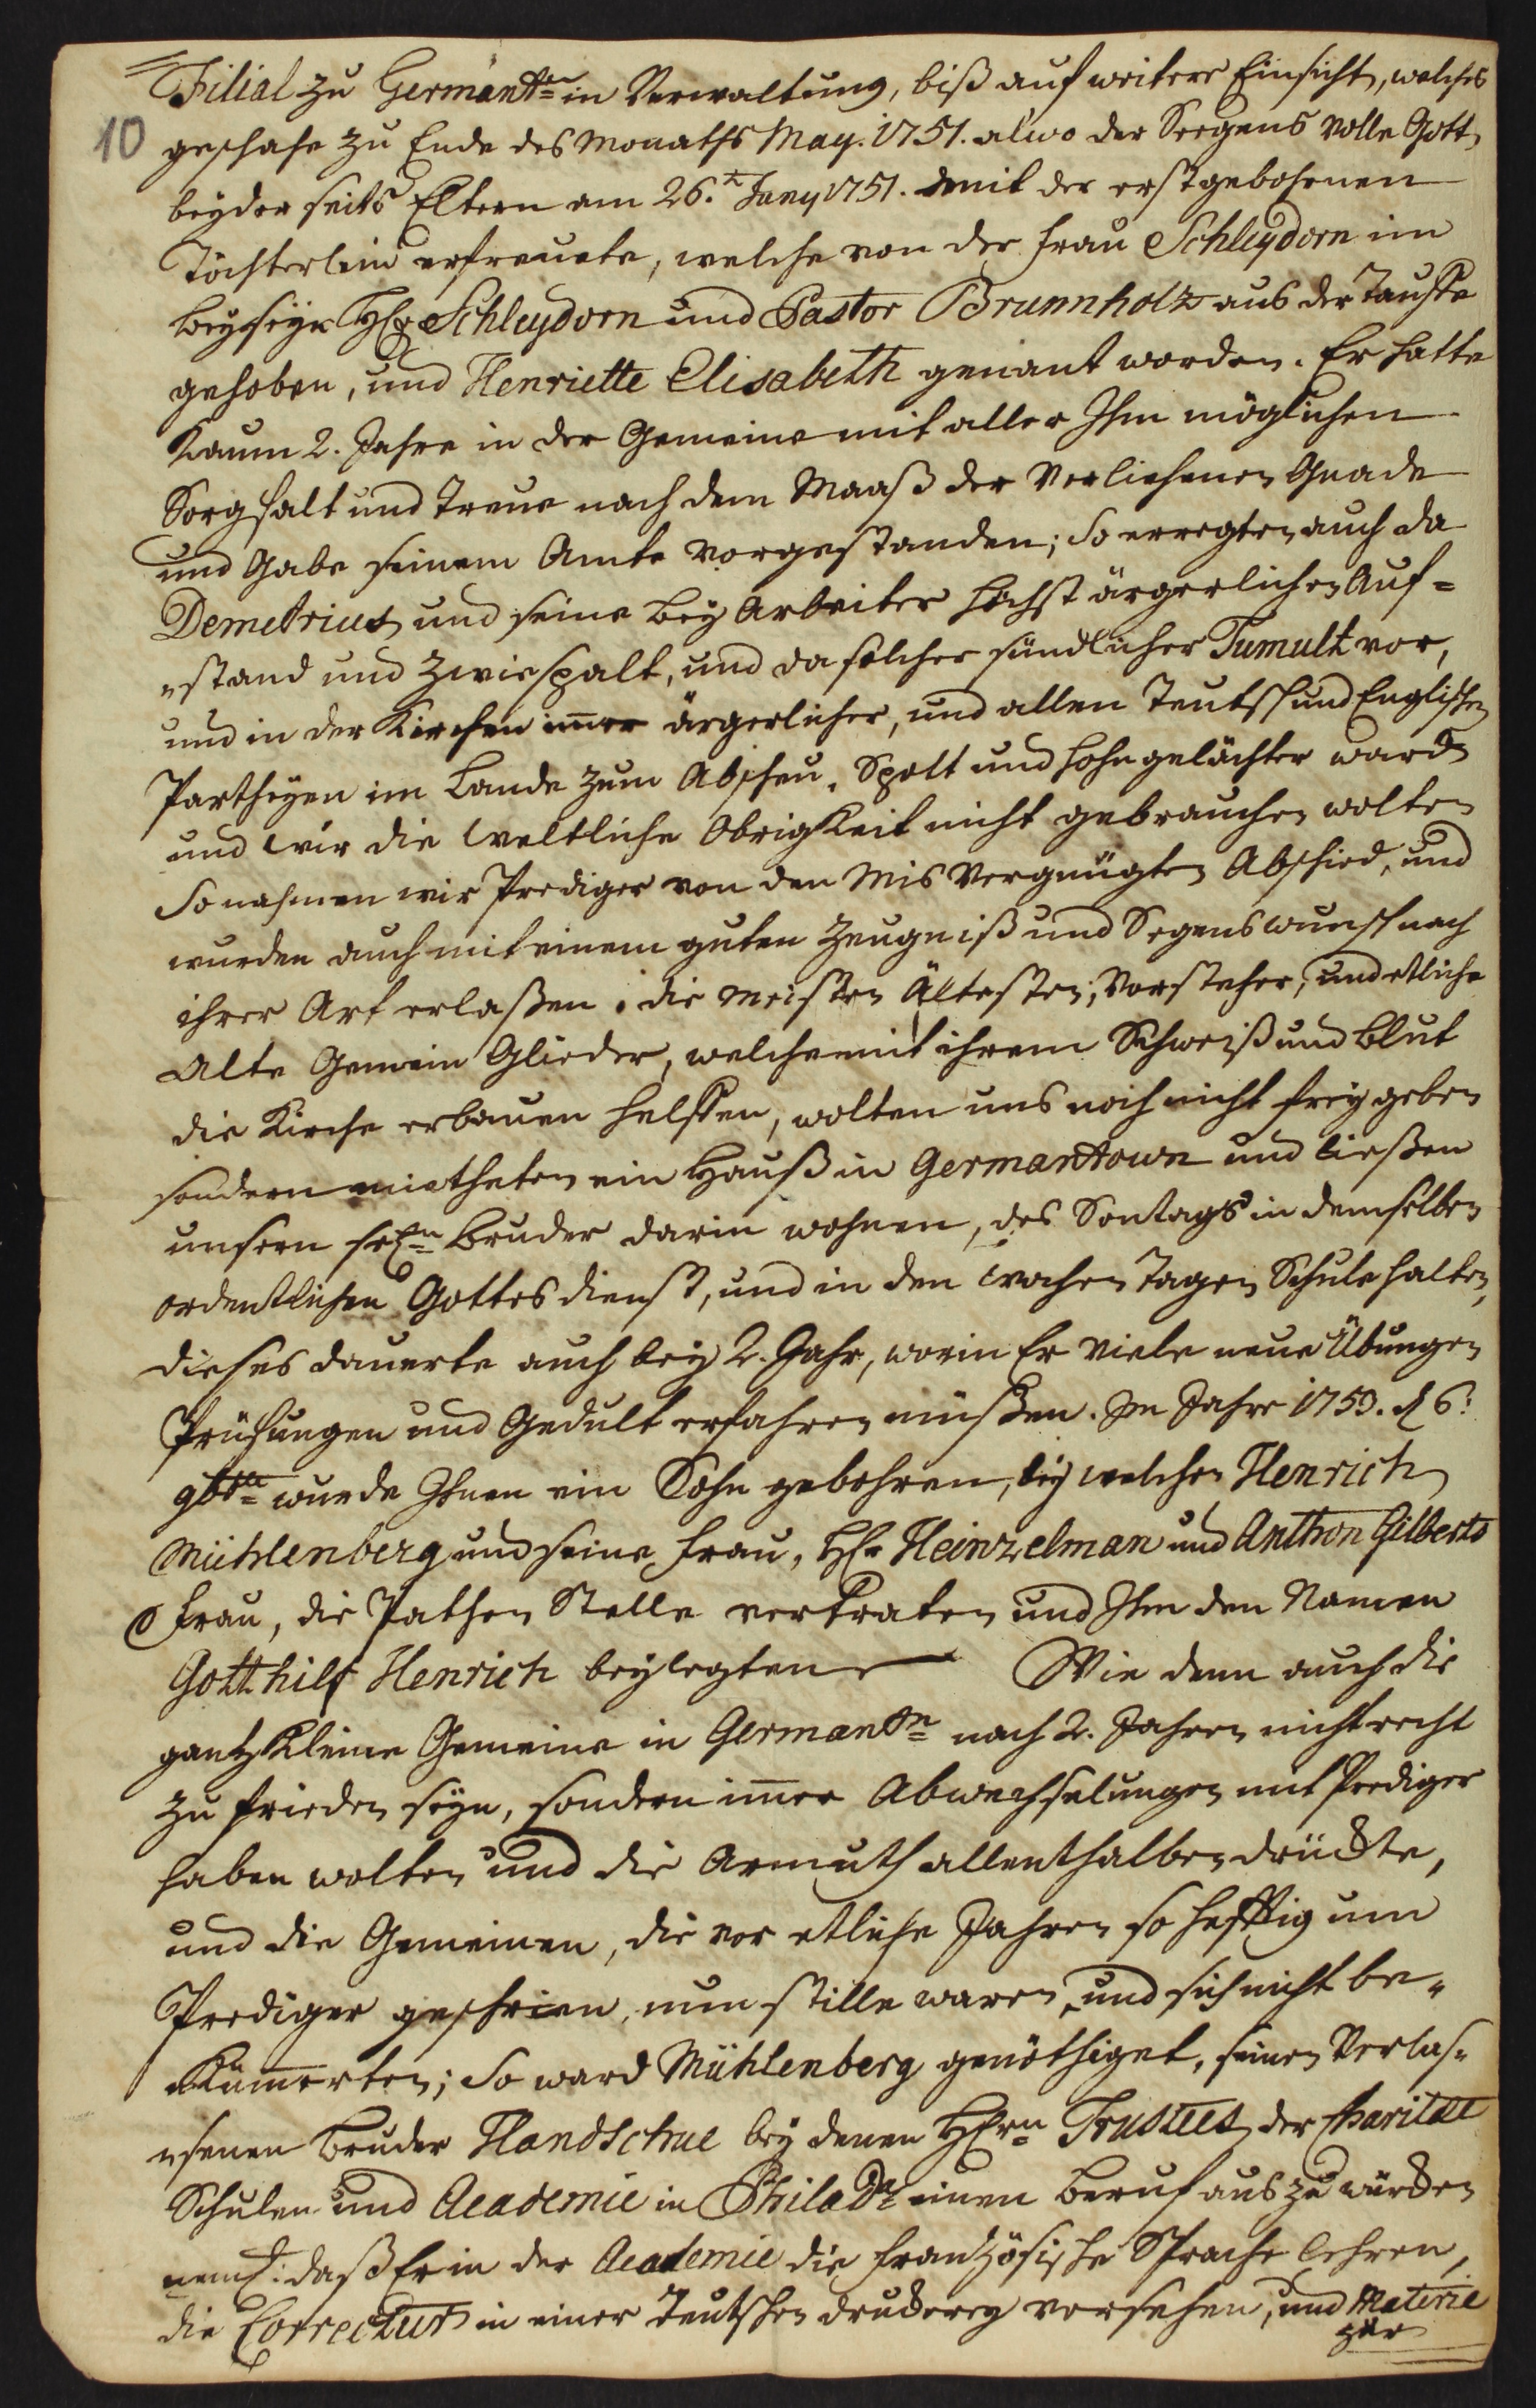 Filial zu Germantn in Verwaltung, biß auf weitere Einsicht, welches
10 geschahe zu Ende des Monaths May. 1751. alwo der Seegens volle Gott,
beyder seits Eltern am 26.t Juny 1751. mit der erstgebohrnen
Töchterlein erfreuete, welche von der Frau Schleydorn im
beyseyn H. Schleydorn und Pastor Brunnholtz aus der Tauffe
gehoben, und Henriette Elisabeth genant worden. Er hatte
kaum 2. Jahre in der Gemeine mit aller Ihm möglichen
Sorgfalt und Treue nach dem Maaß der Verliehenen Gnade
und Gabe seinem Amte vorgestanden; so erregten auch da
Demetrius und seine bey Arbeiter höchst ärgerlichen Auf=
"stand und Zwiespalt, und da solcher sündlicher Tumult vor,
und in der Kirchen im̅er ärgerlicher, und allen Teutsch und Englischen
Partheyen im Lande zum Abscheu, Spott und hohngelächter ward
und wir die Weltliche Obrigkeit nicht gebrauchen wolten
So nahmen wir Prediger von den MisVergnügten Abschied, und
wurden auch mit einem guten Zeugniß und Segenswunsch nach
ihrer Art erlaßen. die meisten Ältesten, Vorsteher, und etliche
Alte Gemein Glieder, welche mit ihrem Schweiß und Blut
die Kirche erbauen helffen, wolten uns noch nicht frey geben
sondern mietheten ein Hauß in Germantown und ließen
unsern Bruder darin wohnen, des Sontags in demselben
ordentlichen Gottesdienst, und in den wochen Tagen Schule halten,
dieses dauerte auch bey 2. Jahr, worin Er viele neue Übungen
Prüfungen und Gedult erfahren müßen. Im Jahre 1753. d 6:
9br wurde Ihnen ein Sohn gebohren, bey welchen Henrich
Mühlenberg und seine Frau, H. Heinzelman und Anthon Gilberts
Frau, die Pathen Stelle vertraten und Ihm den Namen
Gotthilf Henrich beylegten Wie denn auch die
gantz kleine Gemeine in Germantn nach 2. Jahren nicht recht
zu frieden seyn, sondern im̅er Abwechselungen mit Prediger
haben wolten und die Armuth allenthalben drückte,
und die Gemeinen, die vor etliche Jahren so hefftig um
Prediger geschrien, nun stille waren, und sich nicht be"
"küm̅erten; So ward Mühlenberg genöthiget, seinen Verlas"
"senen Bruder Handschue bey denen H. Trustees der Charitæt
Schulen und Academie in Philadа einen Beruf aus zu würcken
neml: daß Er in der Academie die frantzösische Sprache lehren,
die Correctur in einer Teutschen druckerey versehen, und Materie
zur